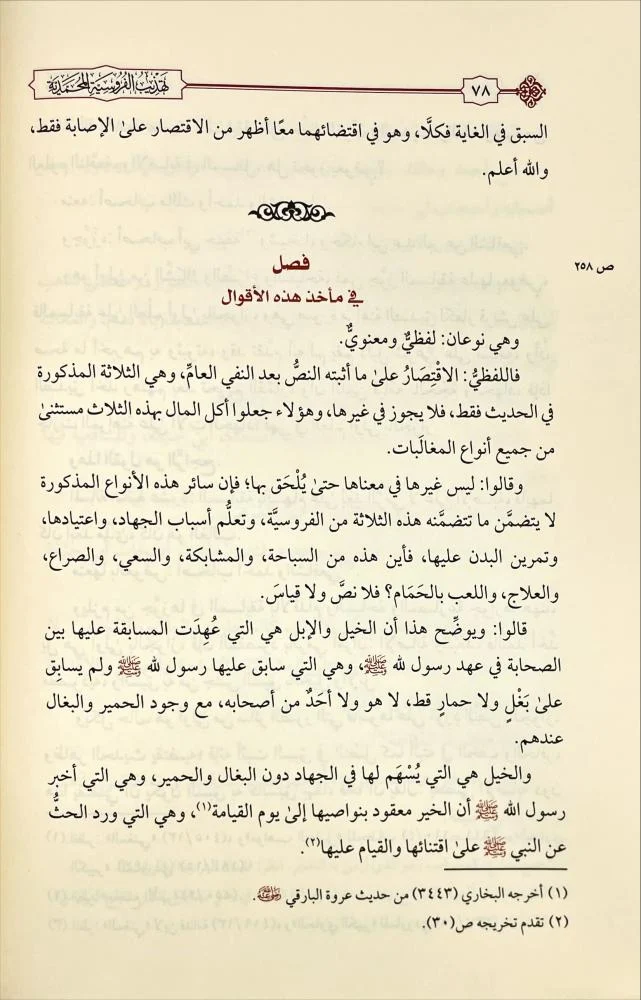 تهذيب الفروسية المحمدية
٧٨
السبق في الغاية فكلَّا، وهو في اقتضائهما معًا أظهر من الاقتصار علىٰ الإصابة فقط،
والله أعلم.
فصل
ص ٢٥٨
في مأخذ هذه الأقوال
وهي نوعان: لفظيٌّ ومعنويٌّ.
فاللفظيُّ: الاقْتِصَارُ علىٰ ما أثبته النصُّ بعد النفي العامِّ، وهي الثلاثة المذكورة
في الحديث فقط، فلا يجوز في غيرها، وهؤلاء جعلوا أكل المال بهذه الثلاث مستثنىٰ
من جميع أنواع المغالَبات.
وقالوا: ليس غيرها في معناها حتىٰ يُلْحَق بها؛ فإن سائر هذه الأنواع المذكورة
لا يتضمَّن ما تتضمَّنه هذه الثلاثة من الفروسيَّة، وتعلُّم أسباب الجهاد، واعتيادها،
وتمرين البدن عليها، فأين هذه من السباحة، والمشابكة، والسعي، والصراع،
والعلاج، واللعب بالحَمَام؟ فلا نصَّ ولا قياسَ.
قالوا: ويوضِّح هذا أن الخيل والإبل هي التي عُهِدَت المسابقة عليها بين
الصحابة في عهد رسول لله ﷺ، وهي التي سابق عليها رسول لله ﷺ ولم يسابِق
علىٰ بَغْلٍ ولا حمارٍ قط، لا هو ولا أحَدٌ من أصحابه، مع وجود الحمير والبغال
عندهم.
والخيل هي التي يُسْهَم لها في الجهاد دون البغال والحمير، وهي التي أخبر
رسول الله ﷺ أن الخير معقود بنواصيها إلىٰ يوم القيامة(١)، وهي التي ورد الحثُّ
عن النبي ﷺ علىٰ اقتنائها والقيام عليها(٢).
(١) أخرجه البخاري (٣٤٤٣) من حديث عروة البارقي رضي الله عنه.
(٢) تقدم تخريجه ص(٣٠).